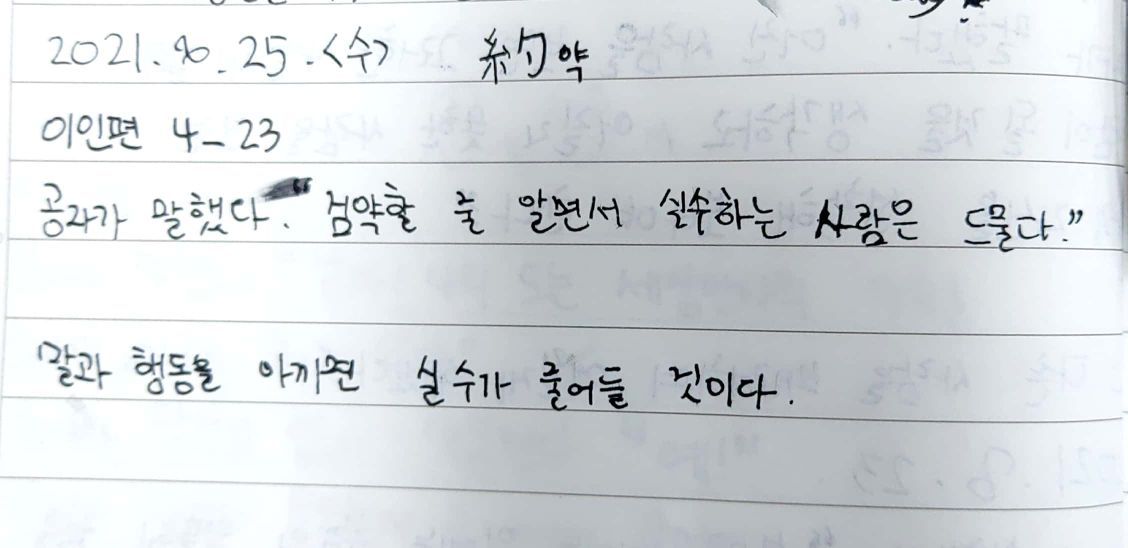 2021.8.25.<수> 約약
이인편 4-23
공자가 말했다. "검약할 줄 알면서 실수하는 사람은 드물다."
말과 행동을 아끼면 실수가 줄어들 것이다.